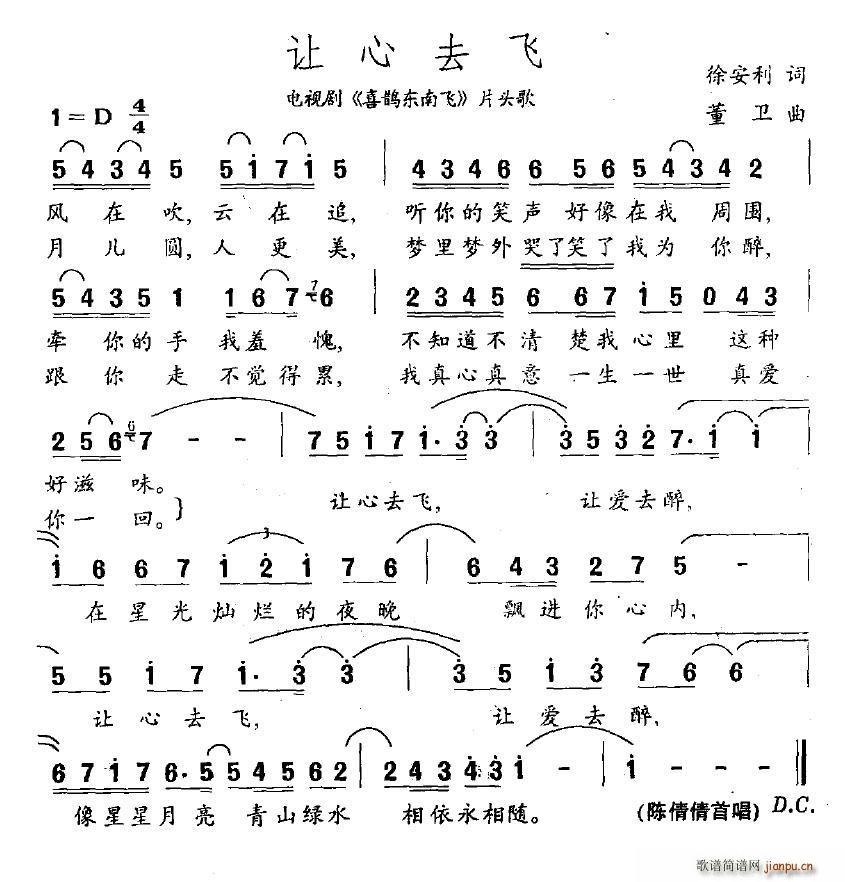 让心去飞
徐安利 词
电视剧《喜鹊东南飞》片头歌
董 卫 曲
1=D 4/4
5 4 3 4 5 5 1 7 1 5 | 4 3 4 6 6 6 5 6 5 4 3 4 2
风 在 吹, 云 在 追, 听你的笑声 好像在我 周围,
月 儿 圆, 人 更 美, 梦里梦外 哭了笑了我为 你醉,
5 4 3 5 1 1 6 7 7 6 | 2 3 4 5 6 6 7 1 5 0 4 3
牵 你的手 我羞 愧, 不知道不清 楚我心里 这种
跟 你 走 不觉得累, 我真心真意 一生一世 真爱
2 5 6 6 7 - - | 7 5 1 7 1· 3 3 | 3 5 3 2 7· 1 1
好滋 味。
让心去飞, 让爱去醉,
你一 回。}
1 6 6 7 1 2 1 7 6 | 6 4 3 2 7 5 -
3
在星光 灿烂的夜晚 飘进你心内,
5 5 1 7 1· 3 3 | 3 5 1 3 7 6 6
让心去飞, 让爱去醉,
6 7 1 7 6· 5 5 4 5 6 2 | 2 4 3 4 3 1 - - 1 - -
像星星月 亮 青山绿水 相依永相随。
(陈倩倩首唱) D.C.
歌谱简谱网
jianpu.cn